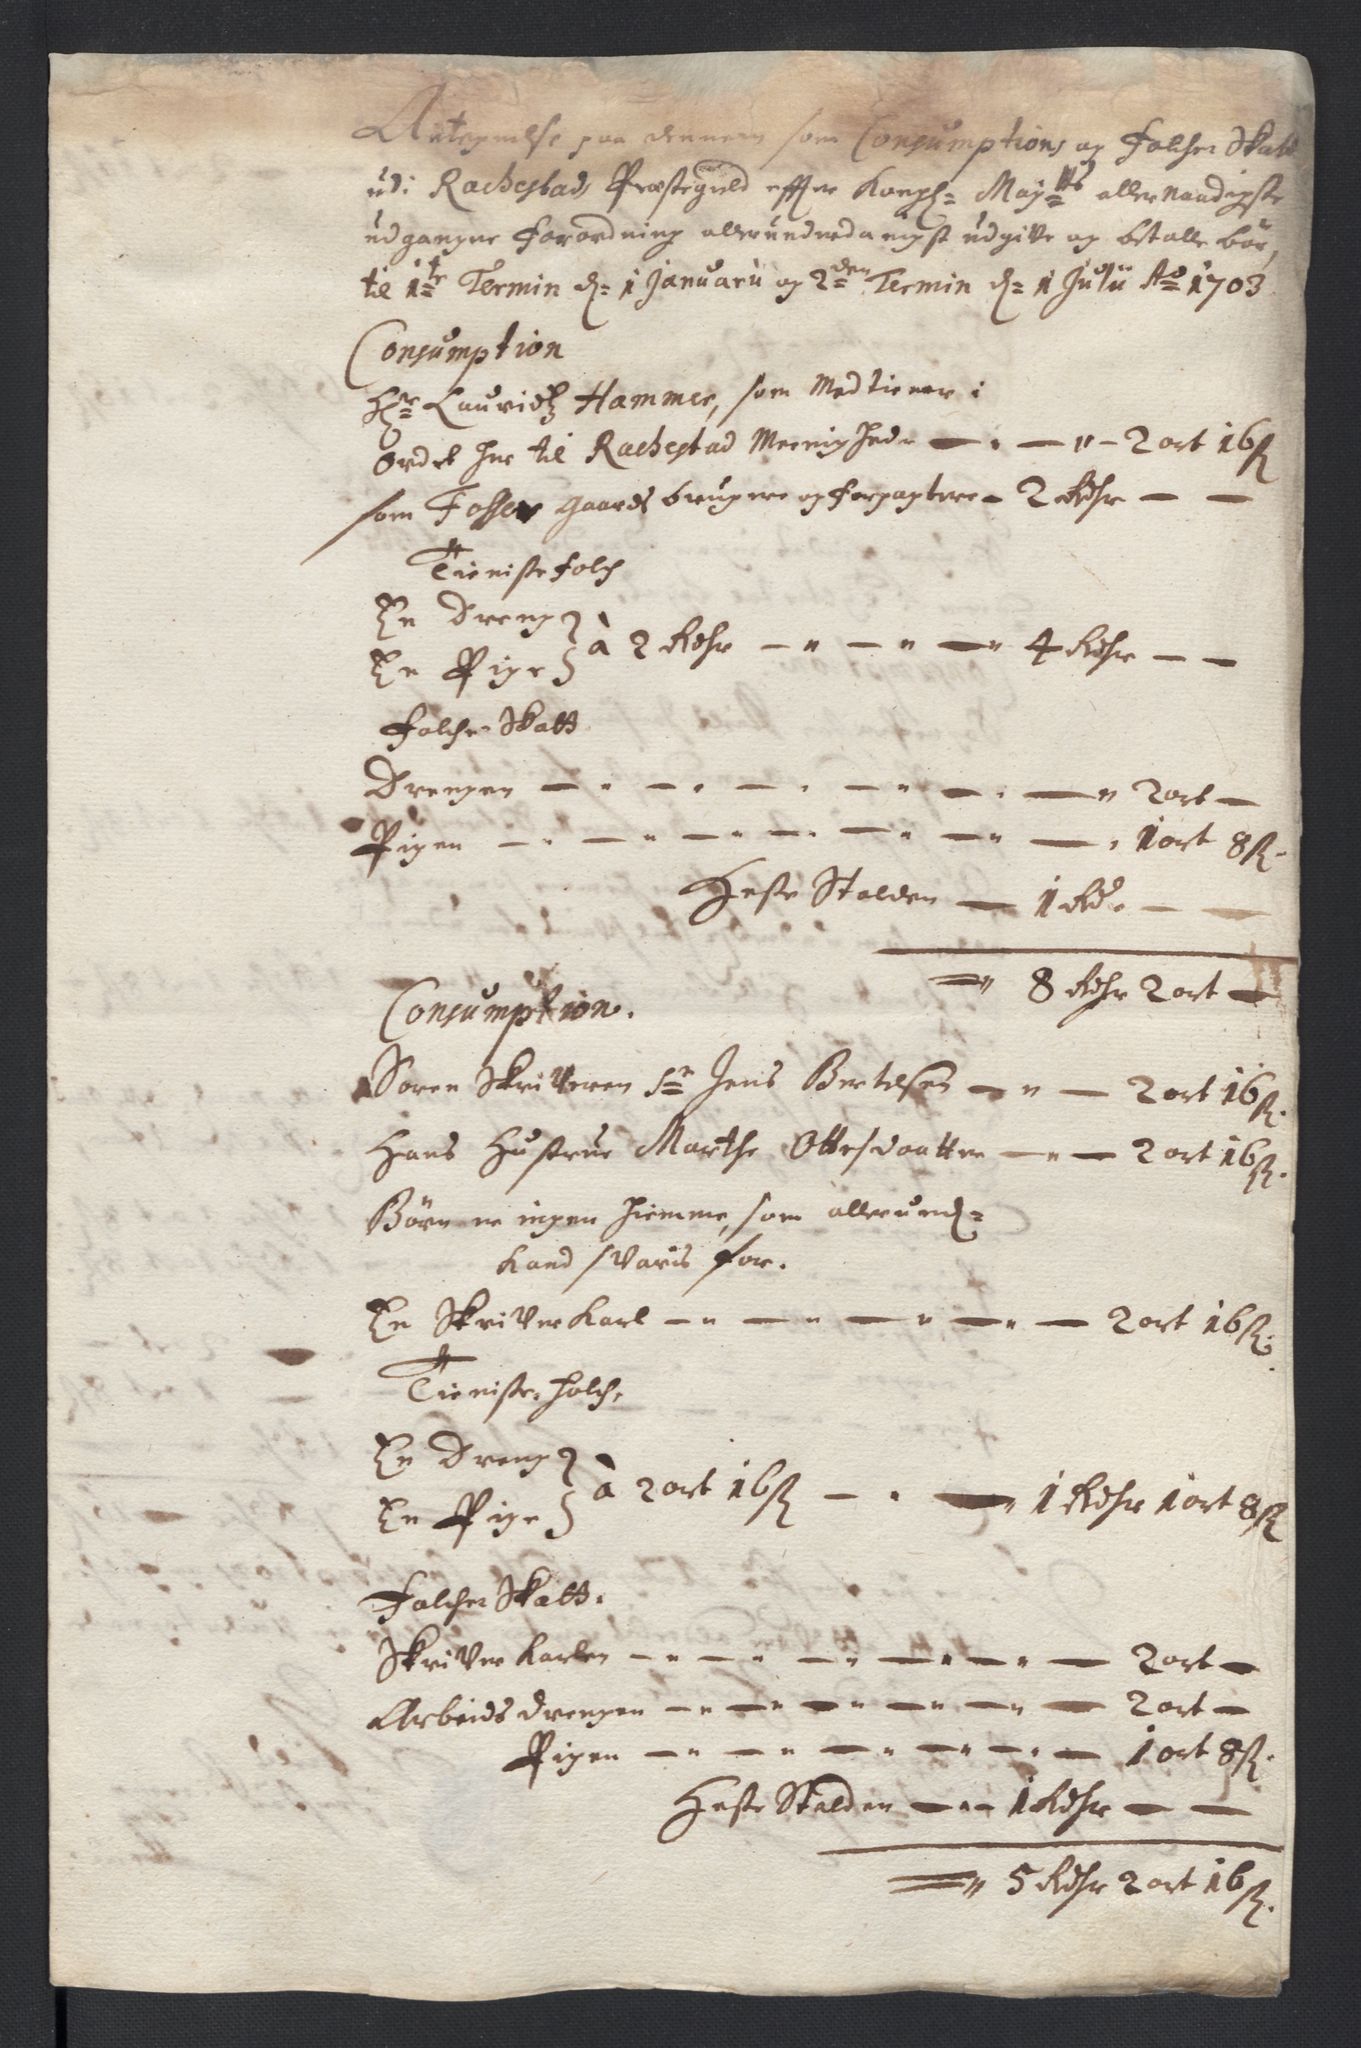 Antegnelse paa dennem som Consumptions og Folche Skatt
udi Rachestads Præstegield effter Kongl= May=tts allernaadigste
udgangne forordning allerunderdanigst udgifve og betalle bør,
til 1=te Termin d= 1 Januarii og 2=den Termin d= 1 Julii Ao 1703
Consumption
Hr= Lauridtz Hammer, som Medtiener i
Ordet her til Rachestad Meenighede — " — " — 2 ort 16 ß
som Fosser gaards brugere og forpagtere — 2 Rdhr — —
Tieniste folch
En Dreng
En Pige } à 2 Rdhr — " — " — " 4 Rdhr — —
Folche Skatt
Drengen — " — " — " — " — " — " 2 ort —
Pigen — " — " — " — " — " — " — " 1 ort 8 ß.
Heste Stalden — 1 Rd. — —
— " 8 Rdhr 2 ort —
Consumption.
Soren Skrifveren Sr= Jens Bertelsen — " — 2 ort 16 ß.
Hans Hustrue Marthe Ottesdaatter — " — 2 ort 16 ß.
Børn er ingen hiemme, som allerund=
kand svaris for.
En Skrifver Karl — " — " — " — " — 2 ort 16 ß.
Tieniste folch.
En Dreng
En Pige } à 2 ort 16 ß — " — " 1 Rdhr 1 ort 8 ß
Folche Skatt.
Skrifver Karlen — " — " — " — " — " — 2 ort —
Arbeids drengen — " — " — " — " — " — 2 ort —
Pigen — " — " — " — " — " — 1 ort 8 ß.
Heste Stalden — " — 1 Rdhr — —
— " 5 Rdhr 2 ort 16 ß.